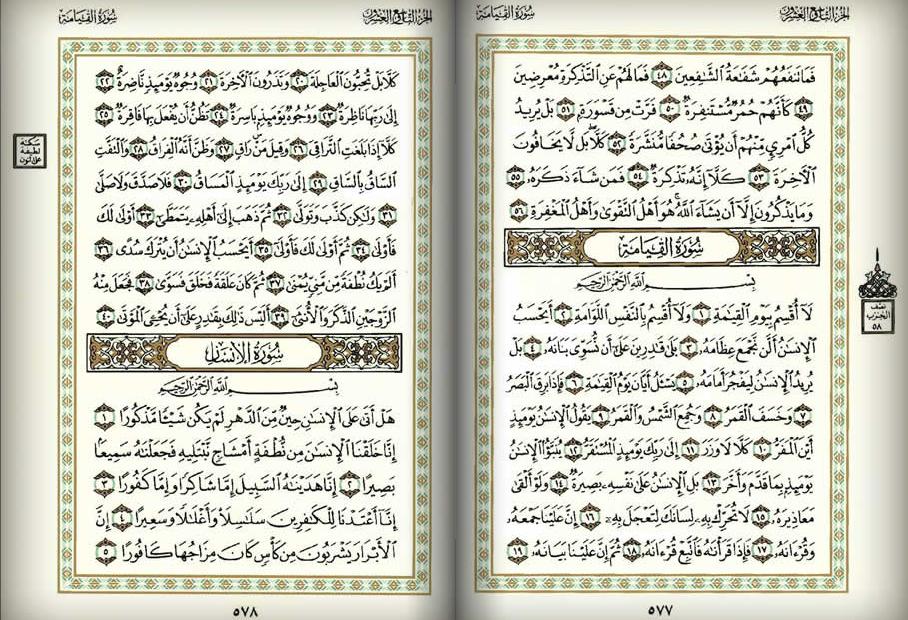 الجزء التاسع والعشرون
سورة القيامة
فما تنفعهم شفعة الشفعين ٤٨ فما لهم عن التذكرة معرضين
٤٩ كأنهم حمر مستنفرة ٥٠ فرت من قسورة ٥١ بل يريد
كل امرئ منهم أن يؤتى صحفا منشرة ٥٢ كلا بل لا يخافون
الأخرة ٥٣ كلا إنه تذكرة ٥٤ فمن شاء ذكره ٥٥
وما يذكرون إلا أن يشاء الله هو أهل التقوى وأهل المغفرة ٥٦
سورة القيامة
بسم الله الرحمن الرحيم
لا أقسم بيوم القيمة ١ ولا أقسم بالنفس اللوامة ٢ أيحسب
الإنسن ألن نجمع عظامه ٣ بلى قدرين على أن نسوي بنانه ٤ بل
يريد الإنسن ليفجر أمامه ٥ يسئل أيان يوم القيمة ٦ فإذا برق البصر
٧ وخسف القمر ٨ وجمع الشمس والقمر ٩ يقول الإنسن يومئذ
أين المفر ١٠ كلا لا وزر ١١ إلى ربك يومئذ المستقر ١٢ ينبؤا الإنسن
يومئذ بما قدم وأخر ١٣ بل الإنسن على نفسه بصيرة ١٤ ولو ألقى
معاذيره ١٥ لا تحرك به لسانك لتعجل به ١٦ إن علينا جمعه
وقرءانه ١٧ فإذا قرأنه فاتبع قرءانه ١٨ ثم إن علينا بيانه ١٩
نصف
الحزب
٥٨
٥٧٧
الجزء التاسع والعشرون
سورة القيامة
كلا بل تحبون العاجلة ٢٠ وتذرون الأخرة ٢١ وجوه يومئذ ناضرة ٢٢
إلى ربها ناظرة ٢٣ ووجوه يومئذ باسرة ٢٤ تظن أن يفعل بها فاقرة ٢٥
كلا إذا بلغت التراقي ٢٦ وقيل من راق ٢٧ وظن أنه الفراق ٢٨ والتفت
الساق بالساق ٢٩ إلى ربك يومئذ المساق ٣٠ فلا صدق ولا صلى
٣١ ولكن كذب وتولى ٣٢ ثم ذهب إلى أهله يتمطى ٣٣ أولى لك
فأولى ٣٤ ثم أولى لك فأولى ٣٥ أيحسب الإنسن أن يترك سدى ٣٦
ألم يك نطفة من مني يمنى ٣٧ ثم كان علقة فخلق فسوى ٣٨ فجعل منه
الزوجين الذكر والأنثى ٣٩ أليس ذلك بقدر على أن يحي الموتى ٤٠
سورة الإنسان
بسم الله الرحمن الرحيم
هل أتى على الإنسن حين من الدهر لم يكن شيئا مذكورا ١
إنا خلقنا الإنسن من نطفة أمشاج نبتليه فجعلنه سميعا
بصيرا ٢ إنا هدينه السبيل إما شاكرا وإما كفورا ٣
إنا أعتدنا للكفرين سلسلا وأغللا وسعيرا ٤ إن
الأبرار يشربون من كأس كان مزاجها كافورا ٥
سكتة
لطيفة
على النون
٥٧٨